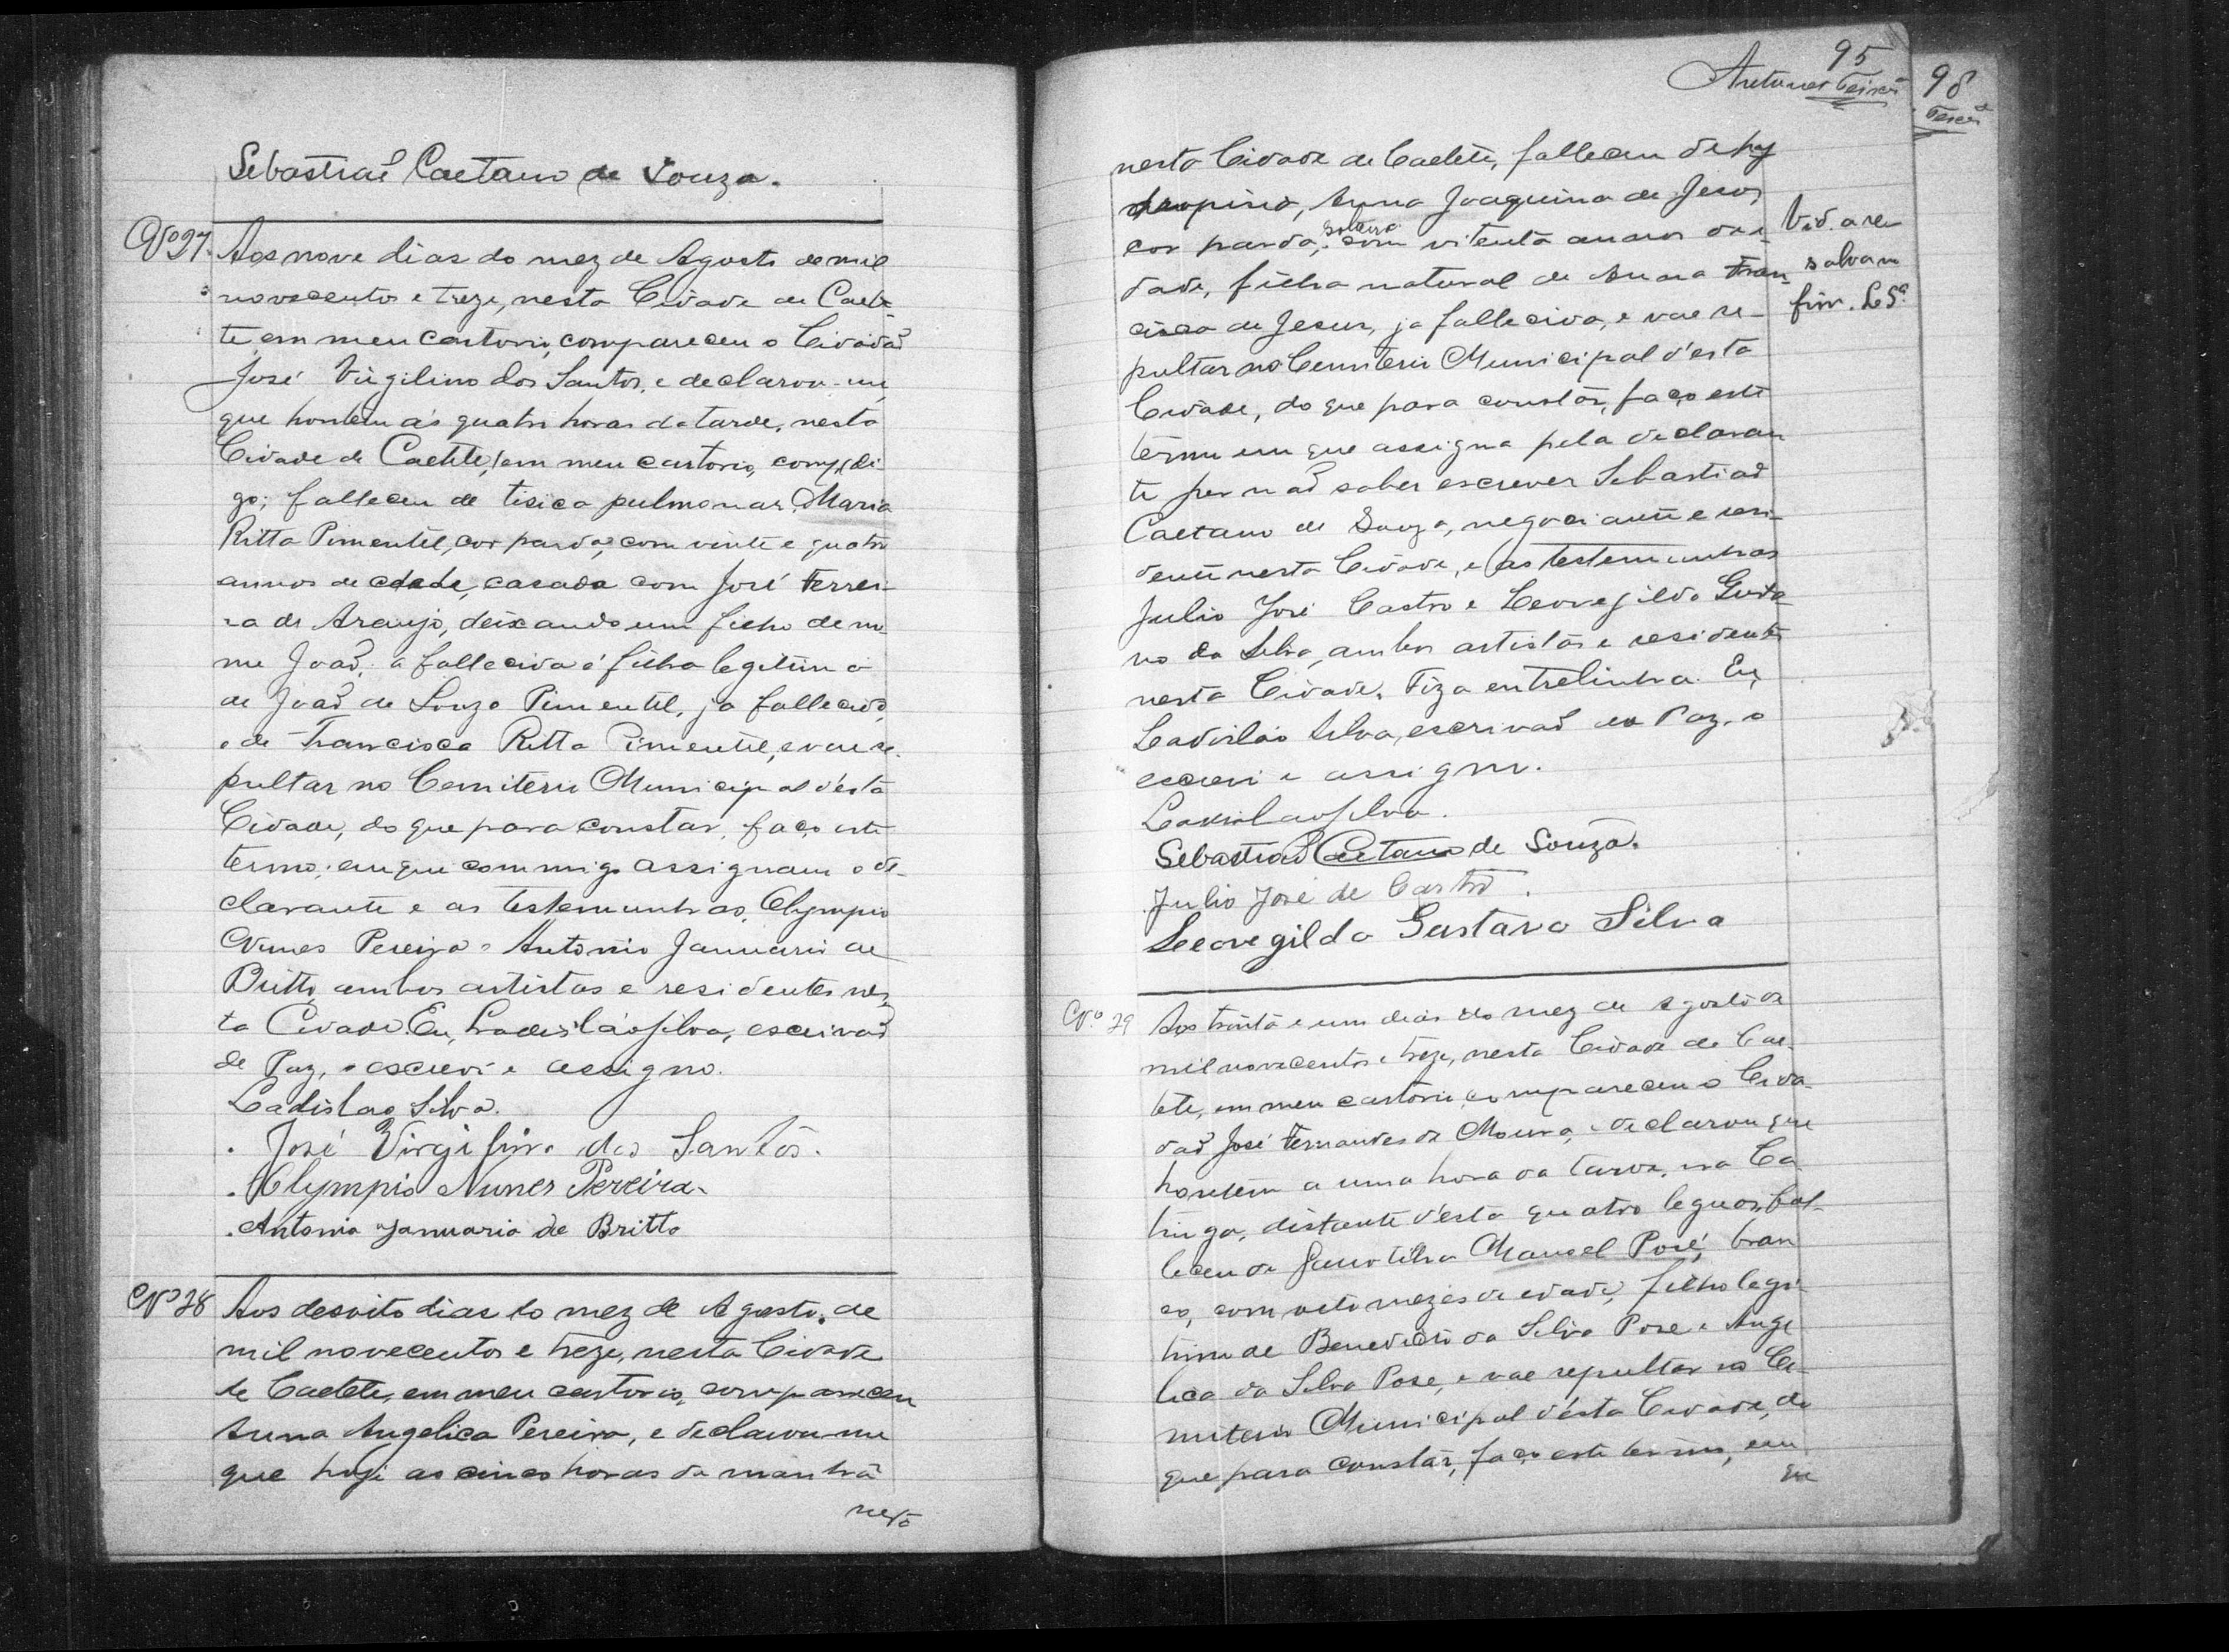 Sebastiaõ Caetano de Souza.
Nº 27. Aos nove dias do mez de Agosto de mil
novecentos e treze, nesta Cidade de Caete-
te em meu cartorio, compareceu o Cidadaõ
José Virgilino dos Santos, e declarou-me
que hontem ás quatro horas da tarde, nesta
Cidade de Caetete, em meu cartorio, comp, di-
go; falleceu de tisica pulmonar, Maria
Ritta Pimentel, cor parda, com vinte e quatro
annos de edade, casada com José Ferrei-
ra de Araujo, deixando um filho de no-
me Joaõ, a fallecida é filha legitima
de Joaõ de Souza Pimentel, ja fallecido,
e de Francisca Ritta Pimentel, e vae se-
pultar no Cemiterio Municipal d'esta
Cidade, do que para constar, faço este
termo, em que commigo assignam o de-
clarante e as testemunhas, Olympio
Nunes Pereira e Antonio Januario de
Britto, ambos artistas e residentes nes-
ta Cidade. Eu, Ladisláo Silva, escrivaõ
de Paz, o escrevi e assigno.
Ladislao Silva.
José Virgilino dos Santos.
Olympio Nunes Pereira.
Antonio Januario de Britto
Nº 28 Aos desoito dias do mez de Agosto de
mil novecentos e treze, nesta Cidade
de Caetete, em meu cartorio, compareceu
Anna Angelica Pereira, e declarou-me
que hoje as cinco horas da manhã
nesta
95
Antunes Teixeira
98
nesta Cidade de Caetete, falleceu de hy
dropisia, Anna Joaquina de Jesus,
cor parda, solteira com oitenta annos de e-
dade, filha natural de Anna Fran-
cisca de Jesus, ja fallecida, e vae se-
pultar no Cemiterio Municipal d'esta
Cidade, do que para constar, faço este
termo em que assigna pela declaran
te por naõ saber escrever Sebastiaõ
Caetano de Souza, negociante e resi-
dente nesta Cidade, e as testemunhas
Julio José Castro e Leovegildo Gusta-
vo da Silva, ambos artistas e residentes
nesta Cidade. Fiz a entrelinha. Eu,
Ladislao Silva, escrivaõ de Paz, o
escrevi e assigno.
Ladislao Silva.
Sebastiaõ Caetano de Souza.
Julio José de Castro.
Leovegildo Gustavo Silva
Nº 29 Aos trinta e um dias do mez de Agosto de
mil novecentos e treze, nesta Cidade de Cae-
tete, em meu cartorio, compareceu o Cida-
daõ José Fernandes de Moura, e declarou que
hontem a uma hora da tarde, na Ca-
tinga, distante d'esta quatro leguas, fal-
leceu de Manoel Posé, bran
co, com oito mezes de edade, filho legi-
timo de Benedicto da Silva Pose e Ange
lica da Silva Pose, e vae sepultar no Ce-
miterio Municipal d'esta Cidade, do
que para constar, faço este termo, em
que